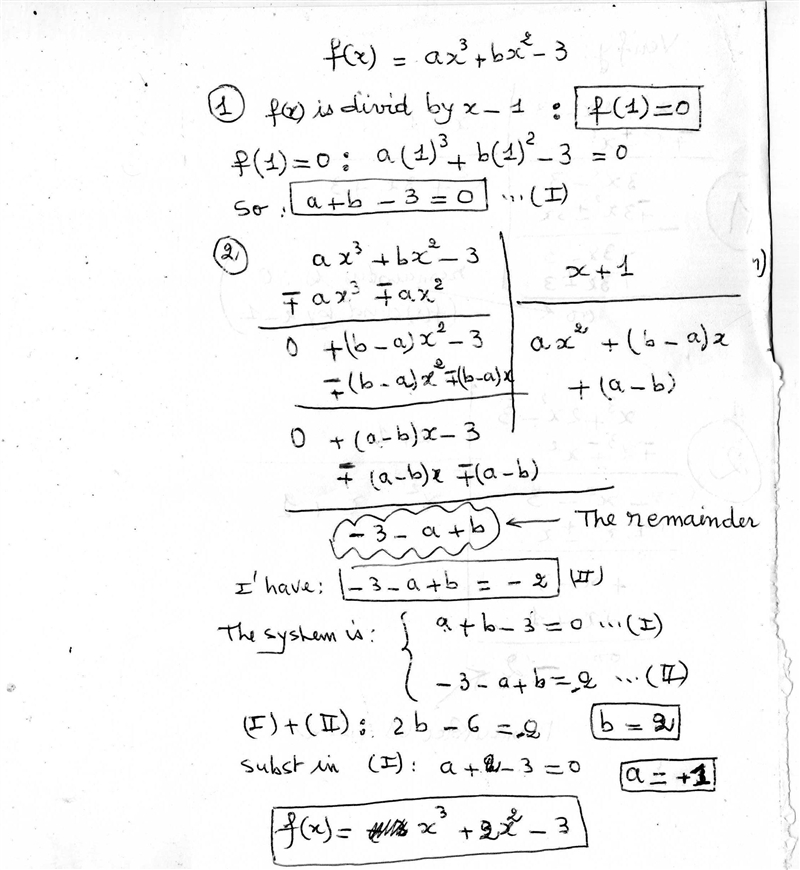 f(x) = ax³ + bx² - 3
① f(x) is divid by x - 1 : f(1) = 0
f(1) = 0 : a(1)³ + b(1)² - 3 = 0
so : a + b - 3 = 0 ...(I)
② ax³ + bx² - 3 | x + 1
∓ ax³ ∓ ax²
0 + (b - a)x² - 3 | ax² + (b - a)x
∓ (b - a)x² ∓ (b - a)x | + (a - b)
0 + (a - b)x - 3
∓ (a - b)x ∓ (a - b)
- 3 - a + b ← The remainder
I' have : - 3 - a + b = - 2 (II)
The system is : { a + b - 3 = 0 ...(I)
- 3 - a + b = - 2 ...(II)
(I) + (II) : 2b - 6 = - 2 b = 2
subst in (I) : a + 2 - 3 = 0 a = + 1
f(x) = x³ + 2x² - 3